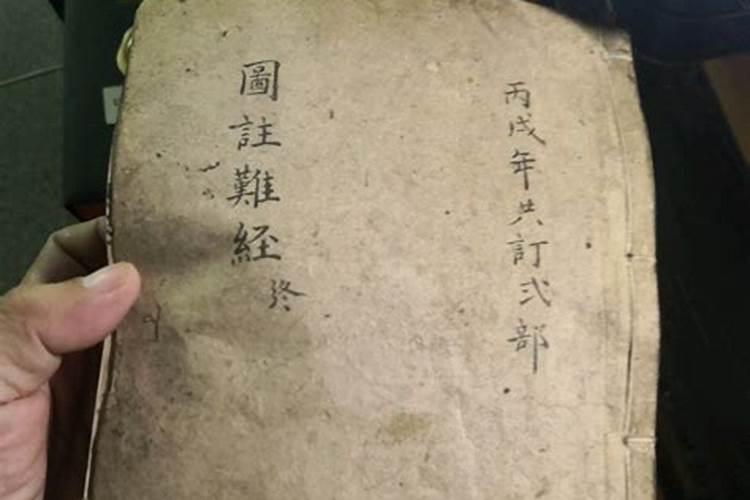 丙戌年共訂弍部
圖註難經
终